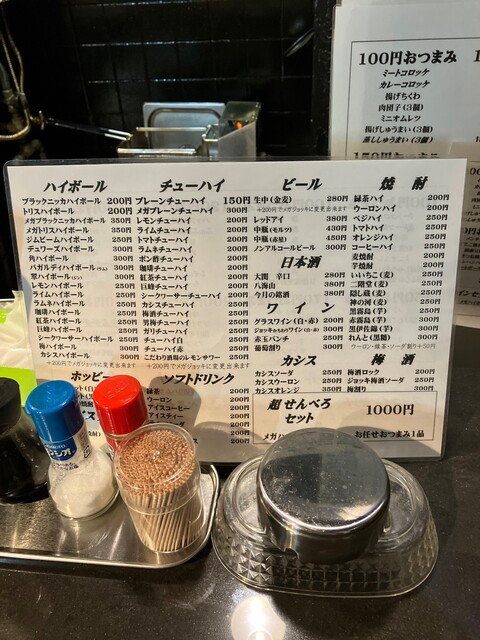 100円おつまみ
ミートコロッケ
カレーコロッケ
揚げちくわ
肉団子(3個)
ミニオムレツ
揚げしゅうまい(3個)
蒸ししゅうまい(3個)
150円おつまみ
ハイボール
ブラックニッカハイボール 200円
トリスハイボール 200円
メガブラックニッカハイボール 350円
メガトリスハイボール 350円
ジムビームハイボール 250円
デュワーズハイボール 300円
角ハイボール 300円
バガルディハイボール(ラム) 300円
翠ハイボール(ジン) 300円
レモンハイボール 250円
ライムハイボール 250円
ラムネハイボール 250円
珈琲ハイボール 250円
紅茶ハイボール 250円
巨峰ハイボール 250円
シークワーサーハイボール 300円
梅ハイボール 300円
カシスハイボール 300円
+200円でメガジョッキに変更出来ます
チューハイ
プレーンチューハイ 150円
メガプレーンチューハイ 300円
レモンチューハイ 250円
ライムチューハイ 250円
トマトチューハイ 250円
ラムネチューハイ 250円
ポン酢チューハイ 250円
珈琲チューハイ 250円
紅茶チューハイ 250円
巨峰チューハイ 250円
シークワーサーチューハイ 250円
カシスチューハイ 250円
梅酒チューハイ 250円
男梅チューハイ 250円
ガリチューハイ 250円
チューハイ 250円
チューハイ赤 250円
こだわり酒場のレモンサワー 250円
+200円でメガジョッキに変更出来ます
ビール
生中(金麦) 280円
+200円でメガジョッキに変更出来ます
レッドアイ 380円
中瓶(モルツ) 430円
中瓶(赤星) 450円
ノンアルコールビール 300円
日本酒
大関 辛口 280円
八海山 380円
今月の銘酒 380円
ワイン
グラスワイン(白・赤) 200円
ジョッキ氷われワイン(白・赤) 300円
赤玉パンチ 250円
葡萄割り 300円
焼酎
緑茶ハイ 200円
ウーロンハイ 200円
ベジハイ 250円
トマトハイ 250円
オレンジハイ 250円
コーヒーハイ 250円
麦焼酎 200円
芋焼酎 200円
いいちこ(麦) 250円
二階堂(麦) 250円
隠し蔵(麦) 250円
神の河(麦) 250円
黒霧島(芋) 250円
赤霧島(芋) 300円
黒伊佐錦(芋) 300円
れんと(黒糖) 300円
ウーロン・緑茶・ソーダ割り+50円
カシス
カシスソーダ 250円
カシスウーロン 250円
カシスオレンジ 250円
梅酒
梅酒ロック 200円
ジョッキ梅酒ソーダ 250円
梅割り 300円
ホッピー
ソフトドリンク
緑茶 200円
ウーロン 200円
アイスコーヒー 200円
アイスティー 200円
オレンジ 200円
超せんべろセット 1000円
お任せおつまみ1品